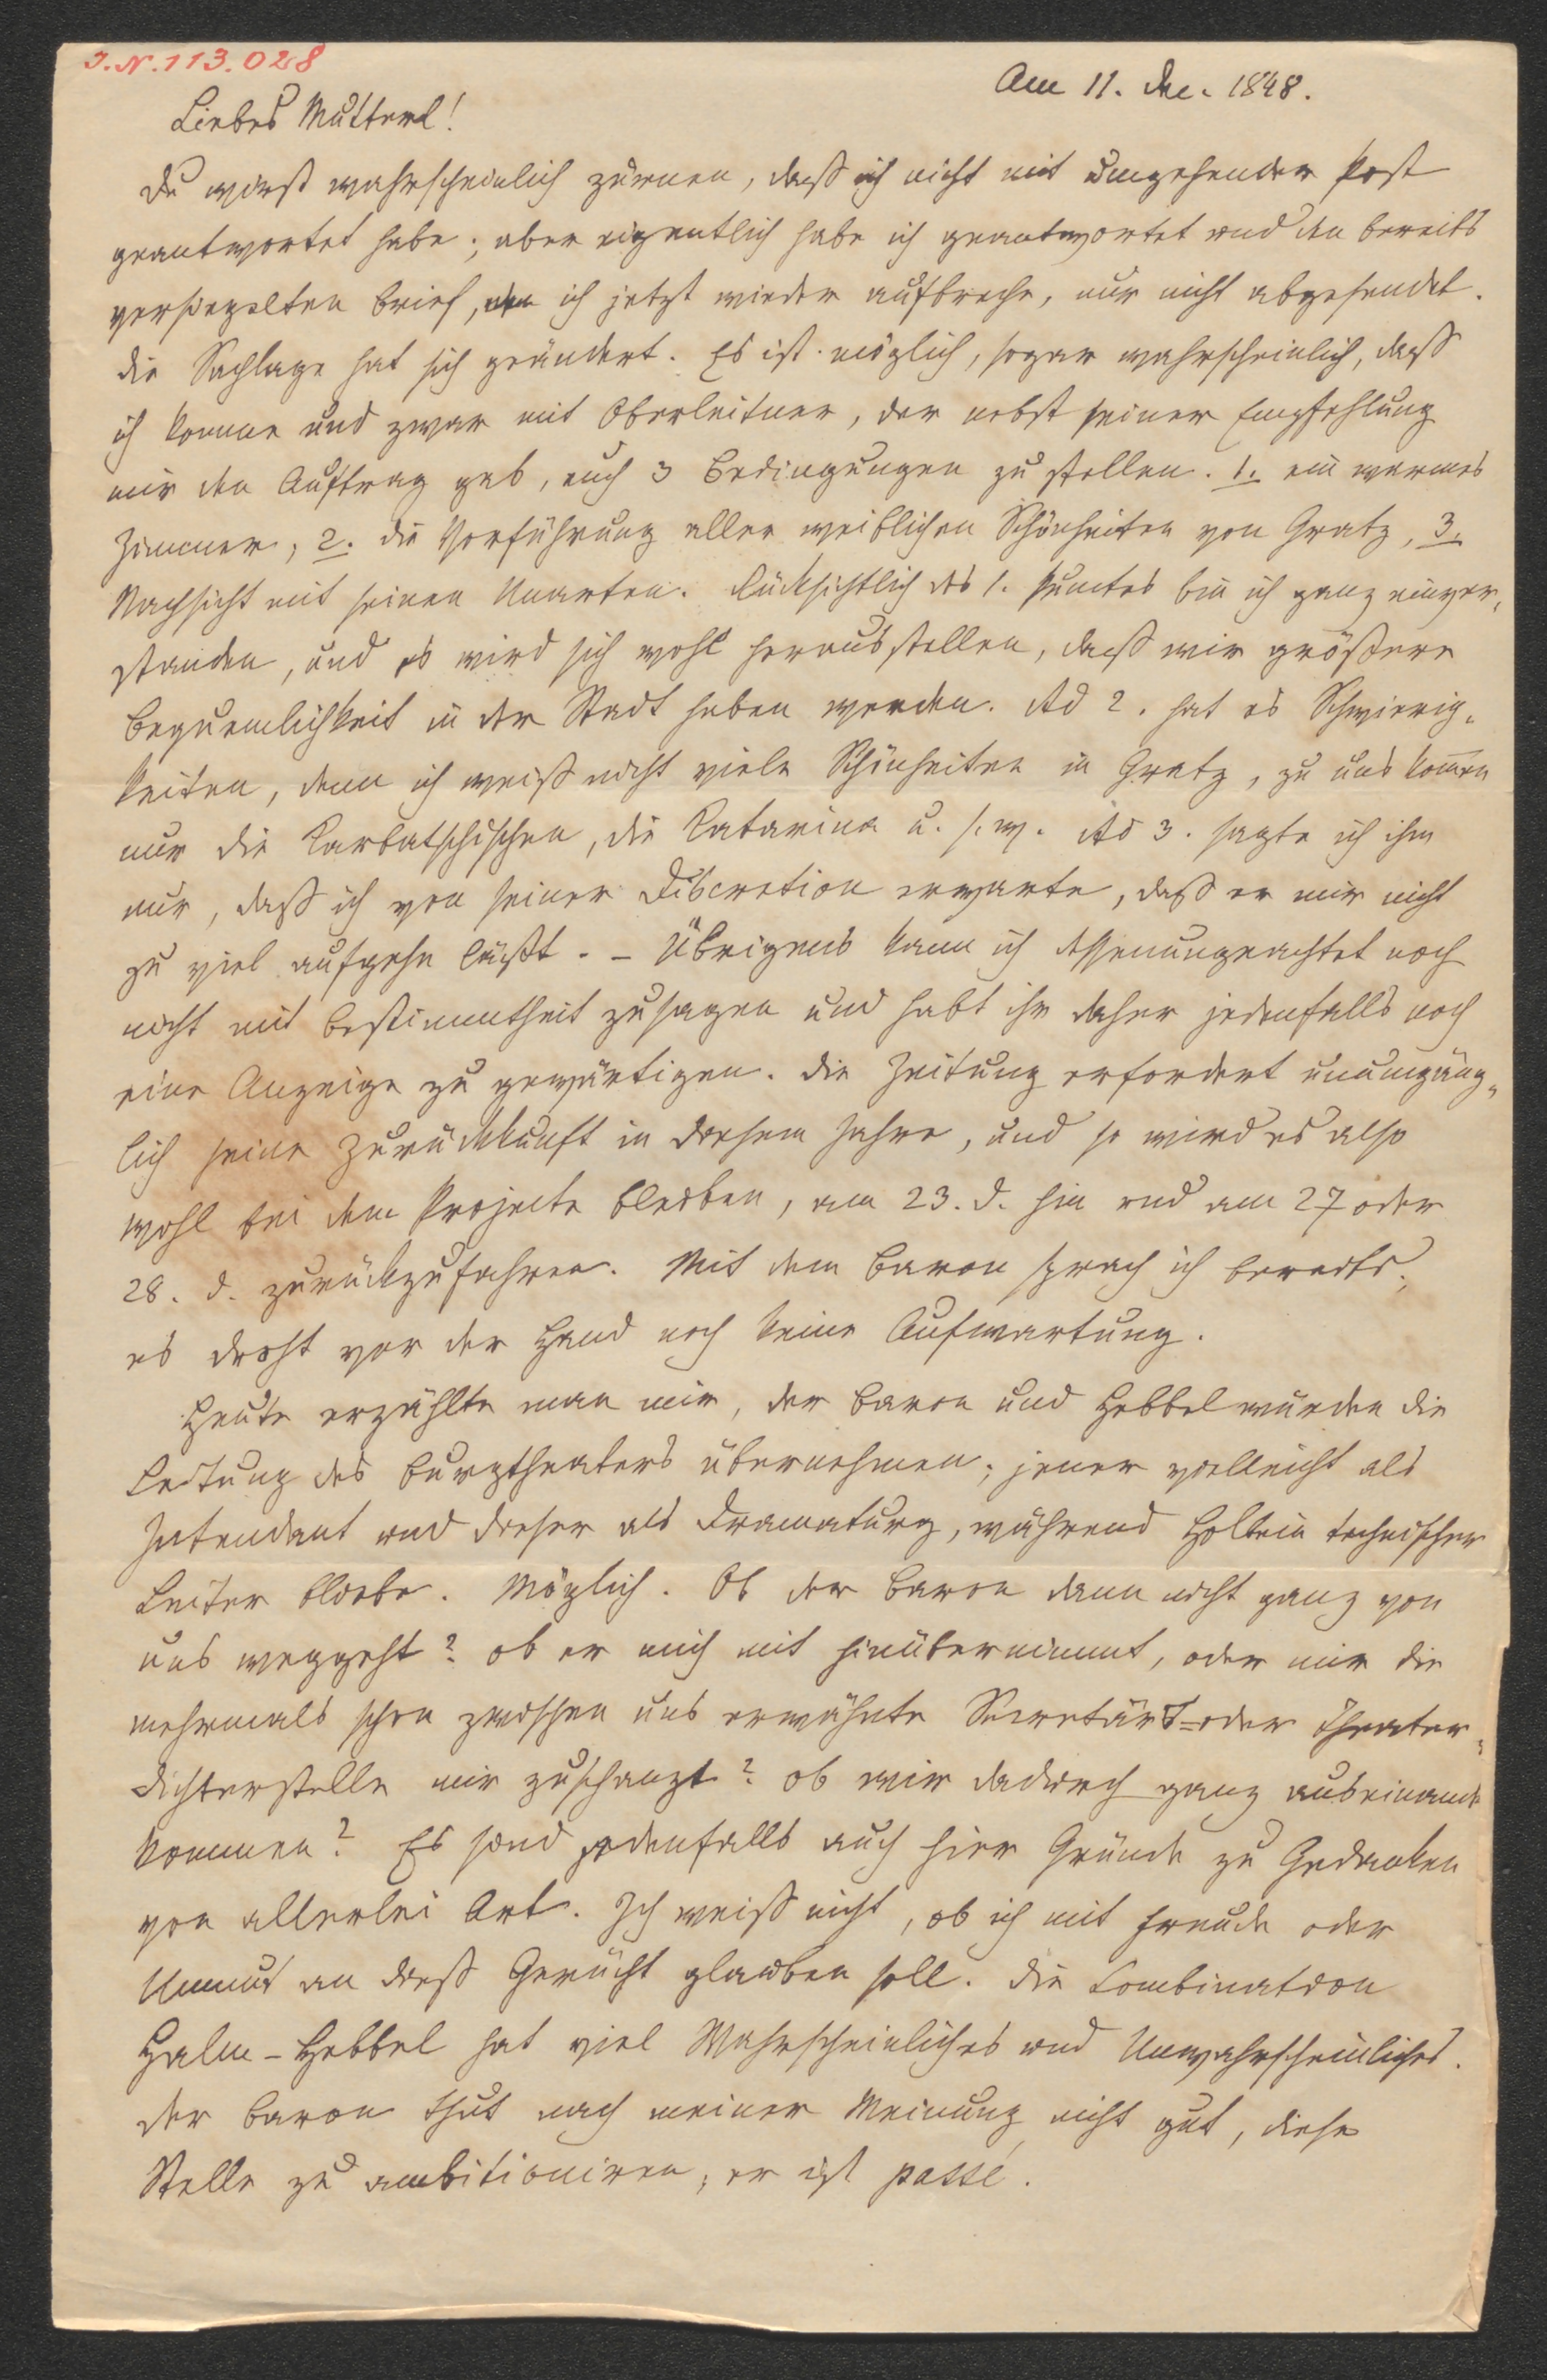 J.N. 113.028
Am 11. Dec. 1848.
Liebes Mutterl!
Du wirst wahrscheinlich zürnen, daß ich nicht mit umgehender Post
geantwortet habe; aber eigentlich habe ich geantwortet und den bereits
versiegelten Brief, den ich jetzt wieder aufbreche, nur nicht abgesendet.
Die Sachlage hat sich geändert. Es ist möglich, sogar wahrscheinlich, daß
ich komme und zwar mit Oberleitner, der nebst seiner Empfehlung
mir den Auftrag gab, euch 3 Bedingungen zu stellen. 1. ein warmes
Zimmer, 2. die Vorführung aller weiblichen Schönheiten von Gratz, 3.
Nachsicht mit seinen Unarten. Rücksichtlich des 1. Punctes bin ich ganz einver-
standen, und es wird sich wohl herausstellen, daß wir größere
Bequemlichkeit in der Stadt haben werden. Ad 2. hat es Schwierig-
keiten, denn ich weiß nicht viele Schönheiten in Gratz, zu uns kom̅en
nur die Karbatschischen, die Catarina u. s. w. Ad 3. sagte ich ihm
nur, daß ich von seiner Discretion erwarte, daß er mir nicht
zu viel aufgehn läßt. – Übrigens kann ich dessenungeachtet noch
nicht mit Bestimmtheit zusagen und habt ihr daher jedenfalls noch
eine Anzeige zu gewärtigen. Die Zeitung erfordert unumgäng-
lich seine Zurückkunft in diesem Jahre, und so wird es also
wohl bei dem Projecte bleiben, am 23. d. hin und am 27 oder
28. d. zurückzufahren. Mit dem Baron sprach ich bereits;
es droht vor der Hand noch keine Aufwartung.
Heute erzählte man mir, der Baron und Hebbel würden die
Leitung des Burgtheaters übernehmen; jener vielleicht als
Intendant und dieser als Dramaturg, während Holbein technischer
Leiter bliebe. Möglich. Ob der Baron dann nicht ganz von
uns weggeht? ob er mich mit hinübernimmt, oder mir die
mehrmals schon zwischen uns erwähnte Secretärs- oder Theater-
dichterstelle mir zuschanzt? ob wir dadurch ganz auseinander
kommen? Es sind jedenfalls auch hier Gründe zu Gedanken
von allerlei Art. Ich weiß nicht, ob ich mit Freude oder
Unmut an dieß Gerücht glauben soll. Die Combination
Halm-Hebbel hat viel Wahrscheinliches und Unwahrscheinliches.
Der Baron thut nach meiner Meinung nicht gut, diese
Stelle zu ambitioniren, er ist passé.